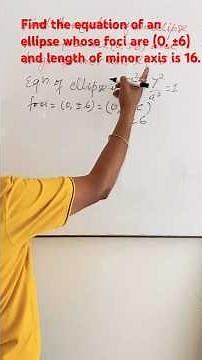 Find the equation of an
ellipse whose foci are (0, ±6)
and length of minor axis is 16.
Eqn of ellipse y²
a² = 1
foci = (0, ±6) = (0,
6